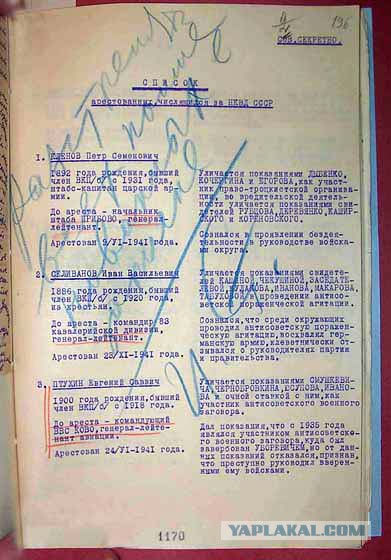 196
СОВ.СЕКРЕТНО.
Расстрелять всех поимен
в списке
И. Ст
СПИСОК
арестованных, числящихся за НКВД СССР
1. КЛЕНОВ Петр Семенович
1892 года рождения, бывший
член ВКП/б/ с 1931 года,
штабс-капитан царской ар-
мии.
До ареста - начальник
штаба ПРИБОВО, генерал-
лейтенант.
Арестован 9/VI-1941 года.
Уличается показаниями ДЫБЕНКО,
КОЧЕРГИНА и ЕГОРОВА, как учас-
тник право-троцкистской организа-
ции, во вредительской деятель-
ности уличается показаниями сви-
детелей РУБЦОВА, ДЕРЕВЯНКО, КАШИР-
СКОГО и КОРЕНОВСКОГО.
Сознался в проявлении бездея-
тельности в руководстве войсками
округа.
2. СЕЛИВАНОВ Иван Васильевич
1886 года рождения, бывший
член ВКП/б/ с 1920 года,
из крестьян.
До ареста - командир 83
кавалерийской дивизии,
генерал-лейтенант.
Арестован 23/XI-1941 года.
Уличается показаниями свидете-
лей ЧЕКУНИНОЙ,
ИВАНОВА, МАКАРОВА,
в проведении антисо-
ветской пораженческой агитации.
Сознался, что среди окружающих
проводил антисоветскую поражен-
ческую агитацию, восхвалял гер-
манскую армию, клеветнически от-
зывался о руководителях партии
и правительства.
3. ПТУХИН Евгений Саввич
1900 года рождения, бывший
член ВКП/б/ с 1918 года.
До ареста - командующий
ВВС КОВО, генерал-лейте-
нант авиации.
Арестован 24/VI-1941 года.
Уличается показаниями СМУШКЕВИ-
ЧА, ЧЕРНОБРОВКИНА, ЮСУПОВА, ИВАНО-
ВА и очной ставкой с ним, как
участник антисоветского военного
заговора.
Дал показания, что с 1935 года
являлся участником антисовет-
ского военного заговора, куда был
завербован УБОРЕВИЧЕМ, но от дан-
ных показаний отказался, признав,
что преступно руководил вверен-
ными ему войсками.
1170
YAPLAKAL.COM